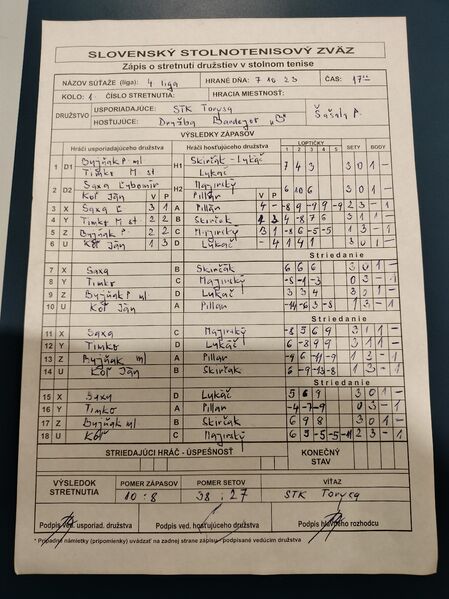 SLOVENSKÝ STOLNOTENISOVÝ ZVÄZ
Zápis o stretnutí družstiev v stolnom tenise
NÁZOV SÚŤAŽE (liga): 4 liga HRANÉ DŇA: 7 10 23 ČAS: 17
KOLO: 1. ČÍSLO STRETNUTIA: HRACIA MIESTNOSŤ:
DRUŽSTVO USPORIADAJÚCE: STK Torysa
HOSŤUJÚCE: Družba Bardejov
VÝSLEDKY ZÁPASOV
Hráči usporiadajúceho družstva Hráči hosťujúceho družstva LOPTIČKY SETY BODY
1 2 3 4 5
1 D1 Bujňák P ml H1 Skirčak - Lukáč 7 4 3 3 0 1 -
Timko M st Lukáč
2 D2 Saxa Ľubomír H2 Majirský 6 10 6 3 0 1 -
Koř Ján V P Pillár V P
3 X Saxa Ľ 3 1 A Pillár
4 Y Timko M st 2 2 B Skirčak 1 3
5 Z Bujňák P. 2 2 C Majirský 3 1 -8 6 -5 -5 1 3 - 1
6 U Koř Ján 1 3 D Lukáč
Striedanie
7 X Saxa B Skirčák 6 6 6 3 0 1 -
8 Y Timko C Majirský -8 -1 -3 0 3 - 1
9 Z Bujňák P ml D Lukáč 3 3 4 3 0 1 -
10 U Koř Ján A Pillar 1 3 - 1
Striedanie
11 X Saxa C Majirský -8 5 6 9 3 1 1 -
12 Y Timko D Lukáč 6 -8 9 9 3 1 1 -
13 Z Bujňák ml A Pillar -9 6 -11 -9 1 3 - 1
14 U Koř Ján B Skirčák 6 -9 -13 -8 1 3 - 1
Striedanie
15 X Saxa D Lukáč 5 6 9 3 0 1 -
16 Y Timko A Pillar -4 -7 -9 0 3 - 1
17 Z Bujňák ml B Skirčák 6 9 8 3 0 1 -
18 U Koř C Majirský 6 9 -5 -5 -11 2 3 - 1
STRIEDAJÚCI HRÁČ - ÚSPEŠNOSŤ KONEČNÝ STAV
VÝSLEDOK STRETNUTIA POMER ZÁPASOV POMER SETOV VÍŤAZ
10 : 8 38 : 27 STK Torysa
Podpis ved. usporiad. družstva Podpis ved. hosťujúceho družstva Podpis hlavného rozhodcu
* Prípadné námietky (pripomienky) uvádzať na zadnej strane zápisu - podpísané vedúcim družstva